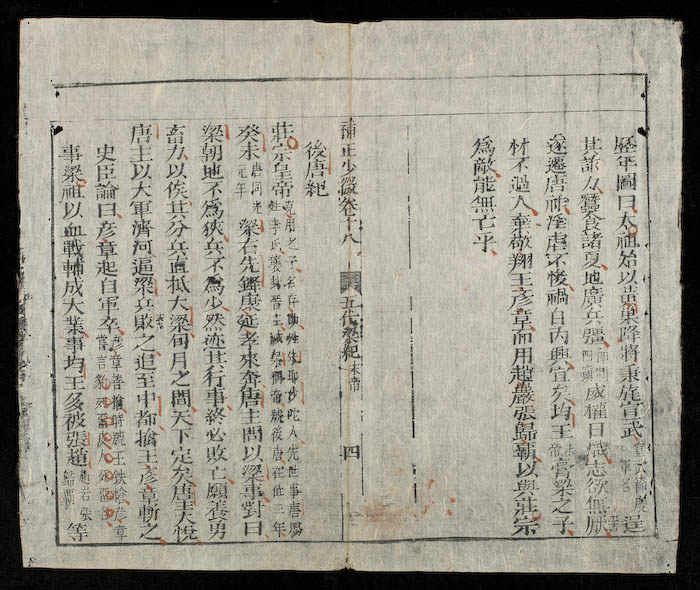 歷年圖曰太祖始以黃巢降將秉旄宣武宣武軍逞
其詐力蠶食諸夏地廣兵彊威權日熾志欲無厭
遂遷唐祚淫虐不悛禍自內興宜矣均王末帝膏粱之子
材不過人棄敬翔王彥章而用趙嚴張歸霸以與莊宗
為敵能無亡乎
補正少微卷十八 五代梁紀末帝 四
後唐紀
莊宗皇帝克用之子名存勗姓朱耶沙陀人先世事唐賜姓李氏襲封晉王滅梁稱帝號後唐在位三年
癸未唐同光元年梁右先鋒康延孝來奔唐主問以梁事對曰
梁朝地不為狹兵不為少然迹其行事終必敗亡願養勇
畜力以俟其分兵直抵大梁旬月之間天下定矣唐主大悅
唐主以大軍濟河逼梁兵敗之追至中都擒王彥章斬之
史臣論曰彥章起自軍卒彥章善鎗時號王鉄鎗彥章嘗言豹死留皮人死留名
事梁祖以血戰輔成大業事均王多被張趙趙岩張歸霸等